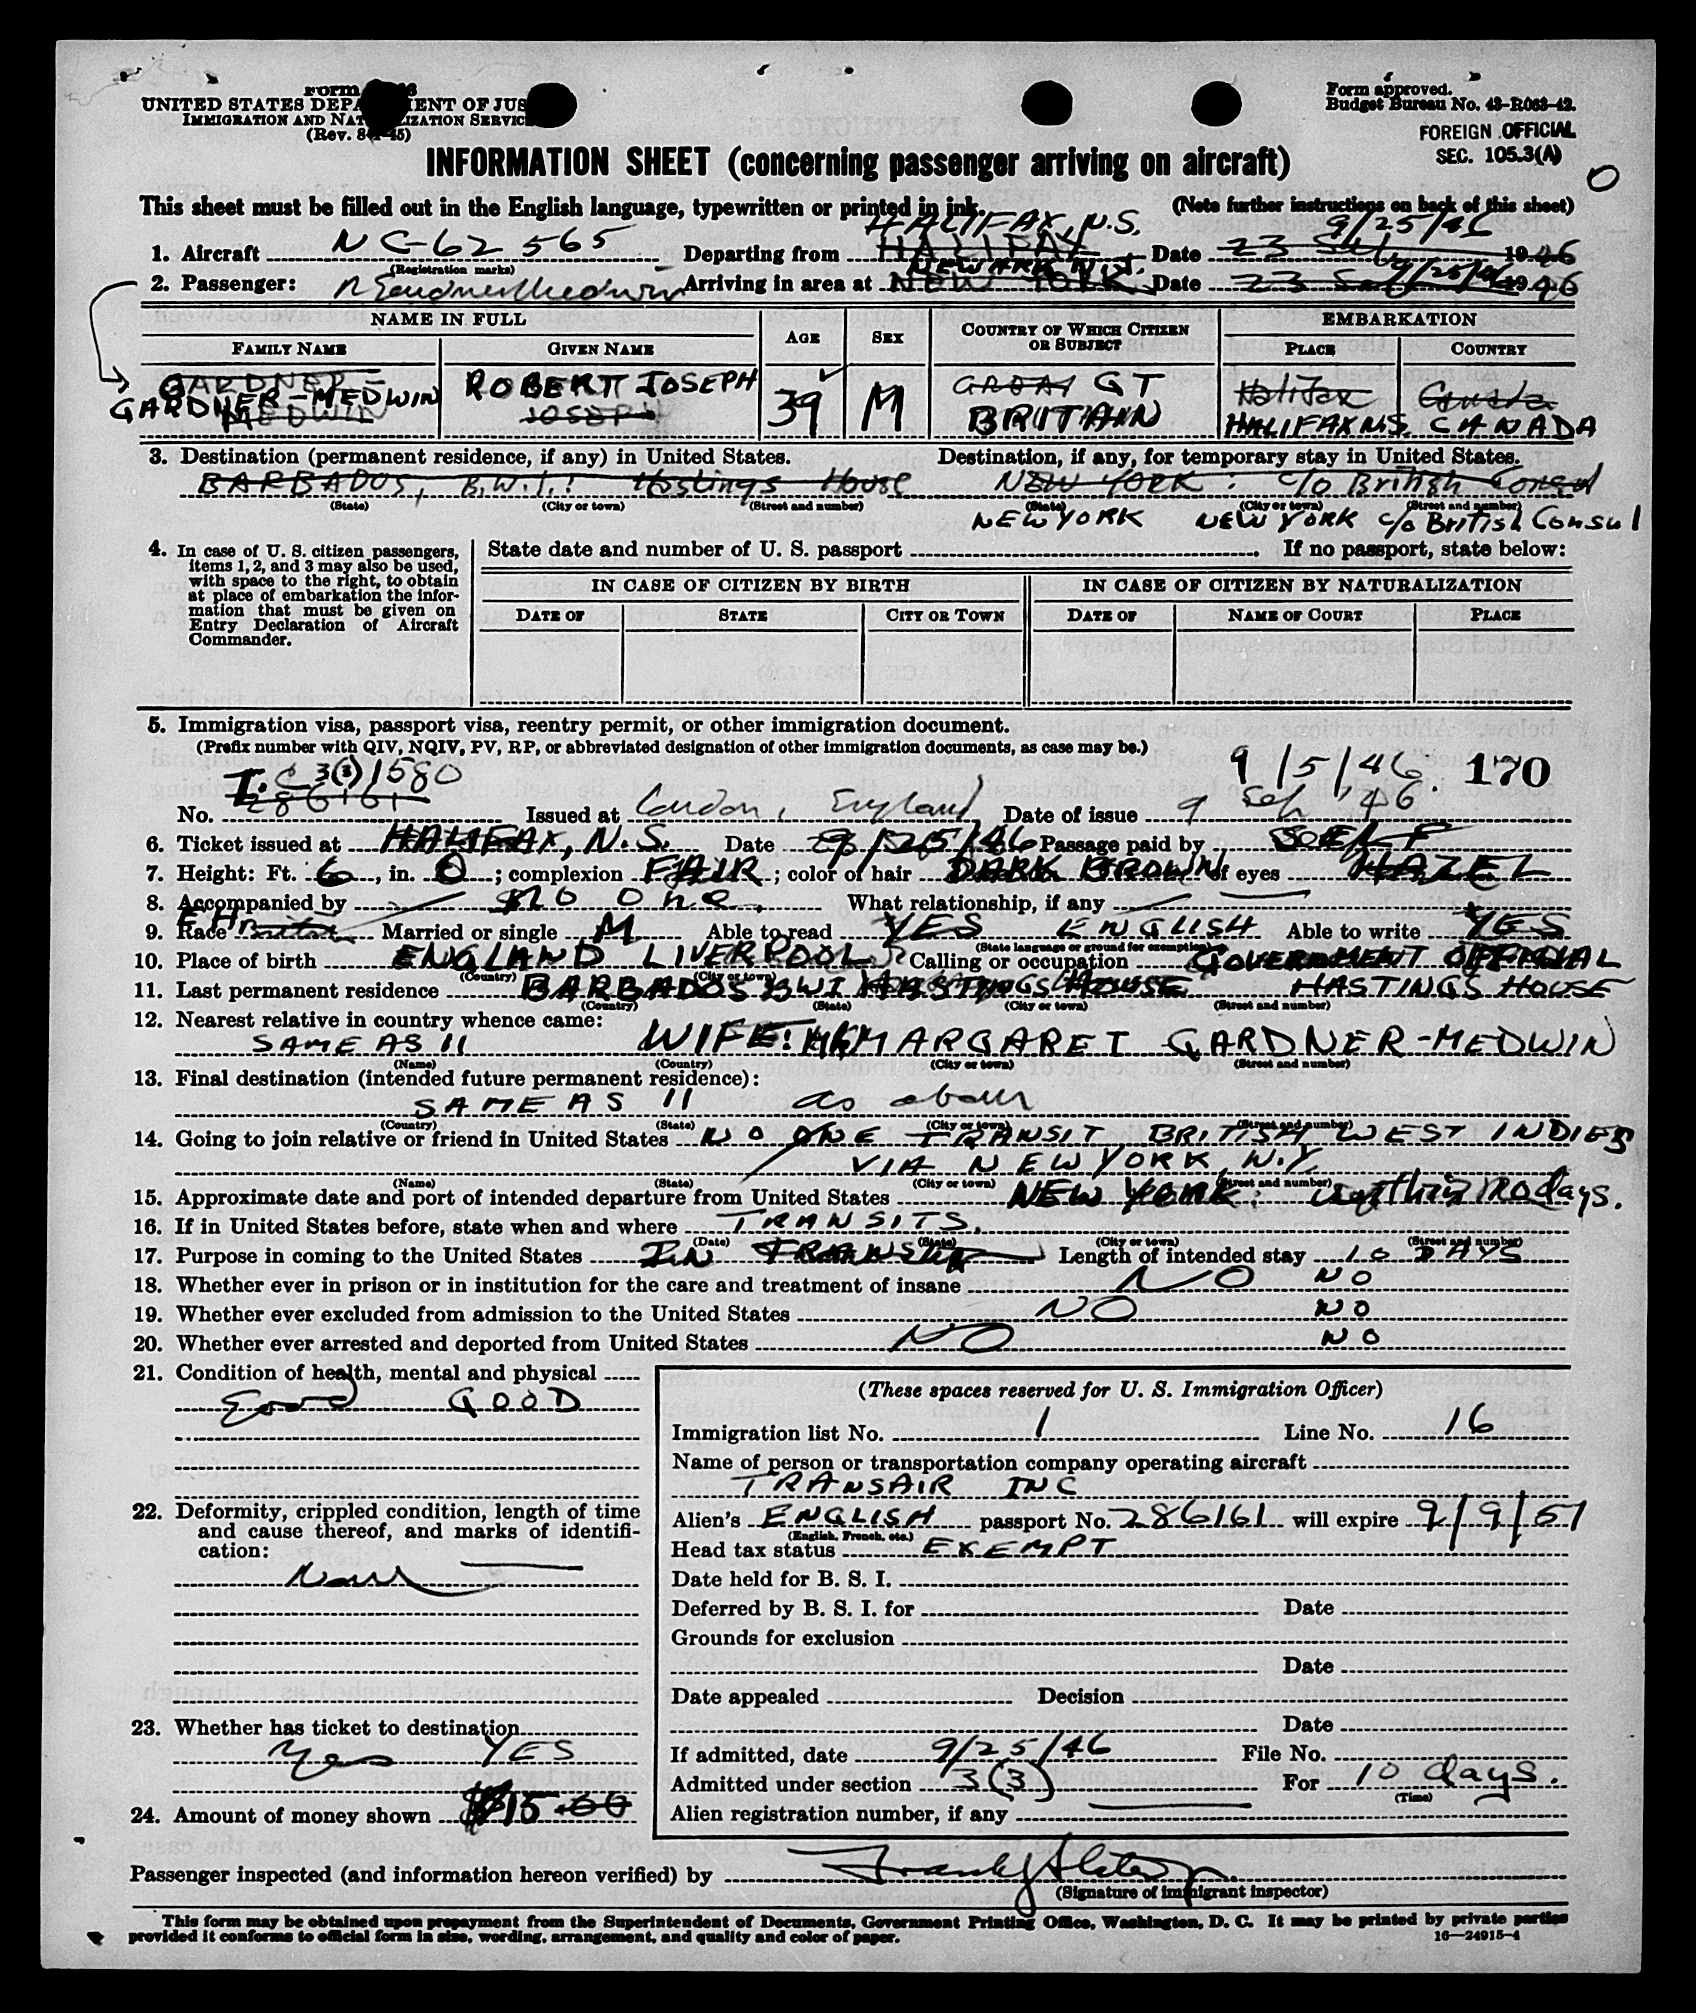 UNITED STATES DEPA MENT OF JUS
IMMIGRATION AND NAT IZATION SERVIC
Form approved.
Budget Bureau No. 43-R063-42.
FOREIGN OFFICIAL
SEC. 105.3(A)
O
INFORMATION SHEET (concerning passenger arriving on aircraft)
This sheet must be filled out in the English language, typewritten or printed in ink. (Note further instructions on back of this sheet)
HALIFAX, N.S. 9/25/46
1. Aircraft NC-62565 Departing from HALIFAX Date 23 1946
(Registration marks) NEWARK N.J. 9/25/46
2. Passenger: R Gardner Medwin Arriving in area at NEW YORK Date 23 1946
NAME IN FULL AGE SEX COUNTRY OF WHICH CITIZEN OR SUBJECT EMBARKATION
FAMILY NAME GIVEN NAME PLACE COUNTRY
GARDNER- ROBERT JOSEPH 39 M GREAT GT Halifax Canada
GARDNER-MEDWIN
MEDWIN JOSEPH BRITAIN HALIFAX N.S. CANADA
3. Destination (permanent residence, if any) in United States. Destination, if any, for temporary stay in United States.
BARBADOS, B.W.I.: Hastings House NEW YORK: c/o British Consul
(State) (City or town) (Street and number) (State) (City or town) (Street and number)
NEW YORK NEW YORK c/o British Consul
4. In case of U. S. citizen passengers, items 1, 2, and 3 may also be used, with space to the right, to obtain at place of embarkation the information that must be given on Entry Declaration of Aircraft Commander.
State date and number of U. S. passport If no passport, state below:
IN CASE OF CITIZEN BY BIRTH IN CASE OF CITIZEN BY NATURALIZATION
DATE OF STATE CITY OR TOWN DATE OF NAME OF COURT PLACE
5. Immigration visa, passport visa, reentry permit, or other immigration document.
(Prefix number with QIV, NQIV, PV, RP, or abbreviated designation of other immigration documents, as case may be.)
3(3) 1580 9/5/46. 170
No. 286161 Issued at London, England Date of issue 9 Sep '46
6. Ticket issued at HALIFAX, N.S. Date 9/25/46 Passage paid by SELF
7. Height: Ft. 6, in. 0; complexion FAIR; color of hair DARK BROWN of eyes HAZEL
8. Accompanied by no one. What relationship, if any
9. Race British Married or single M Able to read YES ENGLISH Able to write YES
(State language or ground for exemption)
10. Place of birth ENGLAND LIVERPOOL Calling or occupation GOVERNMENT OFFICIAL
(Country) (City or town)
11. Last permanent residence BARBADOS BWI HASTINGS HOUSE HASTINGS HOUSE
(Country) (State) (City or town) (Street and number)
12. Nearest relative in country whence came:
SAME AS 11 WIFE: MARGARET GARDNER-MEDWIN
(Name) (Country) (City or town) (Street and number)
13. Final destination (intended future permanent residence):
SAME AS 11 as above
(Country) (State) (City or town) (Street and number)
14. Going to join relative or friend in United States NO ONE TRANSIT BRITISH WEST INDIES
VIA NEW YORK, N.Y.
(Name) (State) (City or town) (Street and number)
15. Approximate date and port of intended departure from United States NEW YORK: within 10 days.
16. If in United States before, state when and where TRANSITS.
(Date) (State) (City or town) (Street and number)
17. Purpose in coming to the United States IN TRANSIT Length of intended stay 10 DAYS
18. Whether ever in prison or in institution for the care and treatment of insane NO NO
19. Whether ever excluded from admission to the United States NO NO
20. Whether ever arrested and deported from United States NO NO
21. Condition of health, mental and physical
Good GOOD
22. Deformity, crippled condition, length of time
and cause thereof, and marks of identifi-
cation:
None
23. Whether has ticket to destination
Yes YES
24. Amount of money shown $15.00
(These spaces reserved for U. S. Immigration Officer)
Immigration list No. 1 Line No. 16
Name of person or transportation company operating aircraft
TRANSAIR INC
Alien's ENGLISH passport No. 286161 will expire 9/9/51
(English, French, etc.)
Head tax status EXEMPT
Date held for B. S. I.
Deferred by B. S. I. for Date
Grounds for exclusion
Date
Date appealed Decision
Date
If admitted, date 9/25/46 File No.
Admitted under section 3(3) For 10 days.
(Time)
Alien registration number, if any
Passenger inspected (and information hereon verified) by
(Signature of immigrant inspector)
This form may be obtained upon prepayment from the Superintendent of Documents, Government Printing Office, Washington, D. C. It may be printed by private parties
provided it conforms to official form in size, wording, arrangement, and quality and color of paper.
16—24915-4